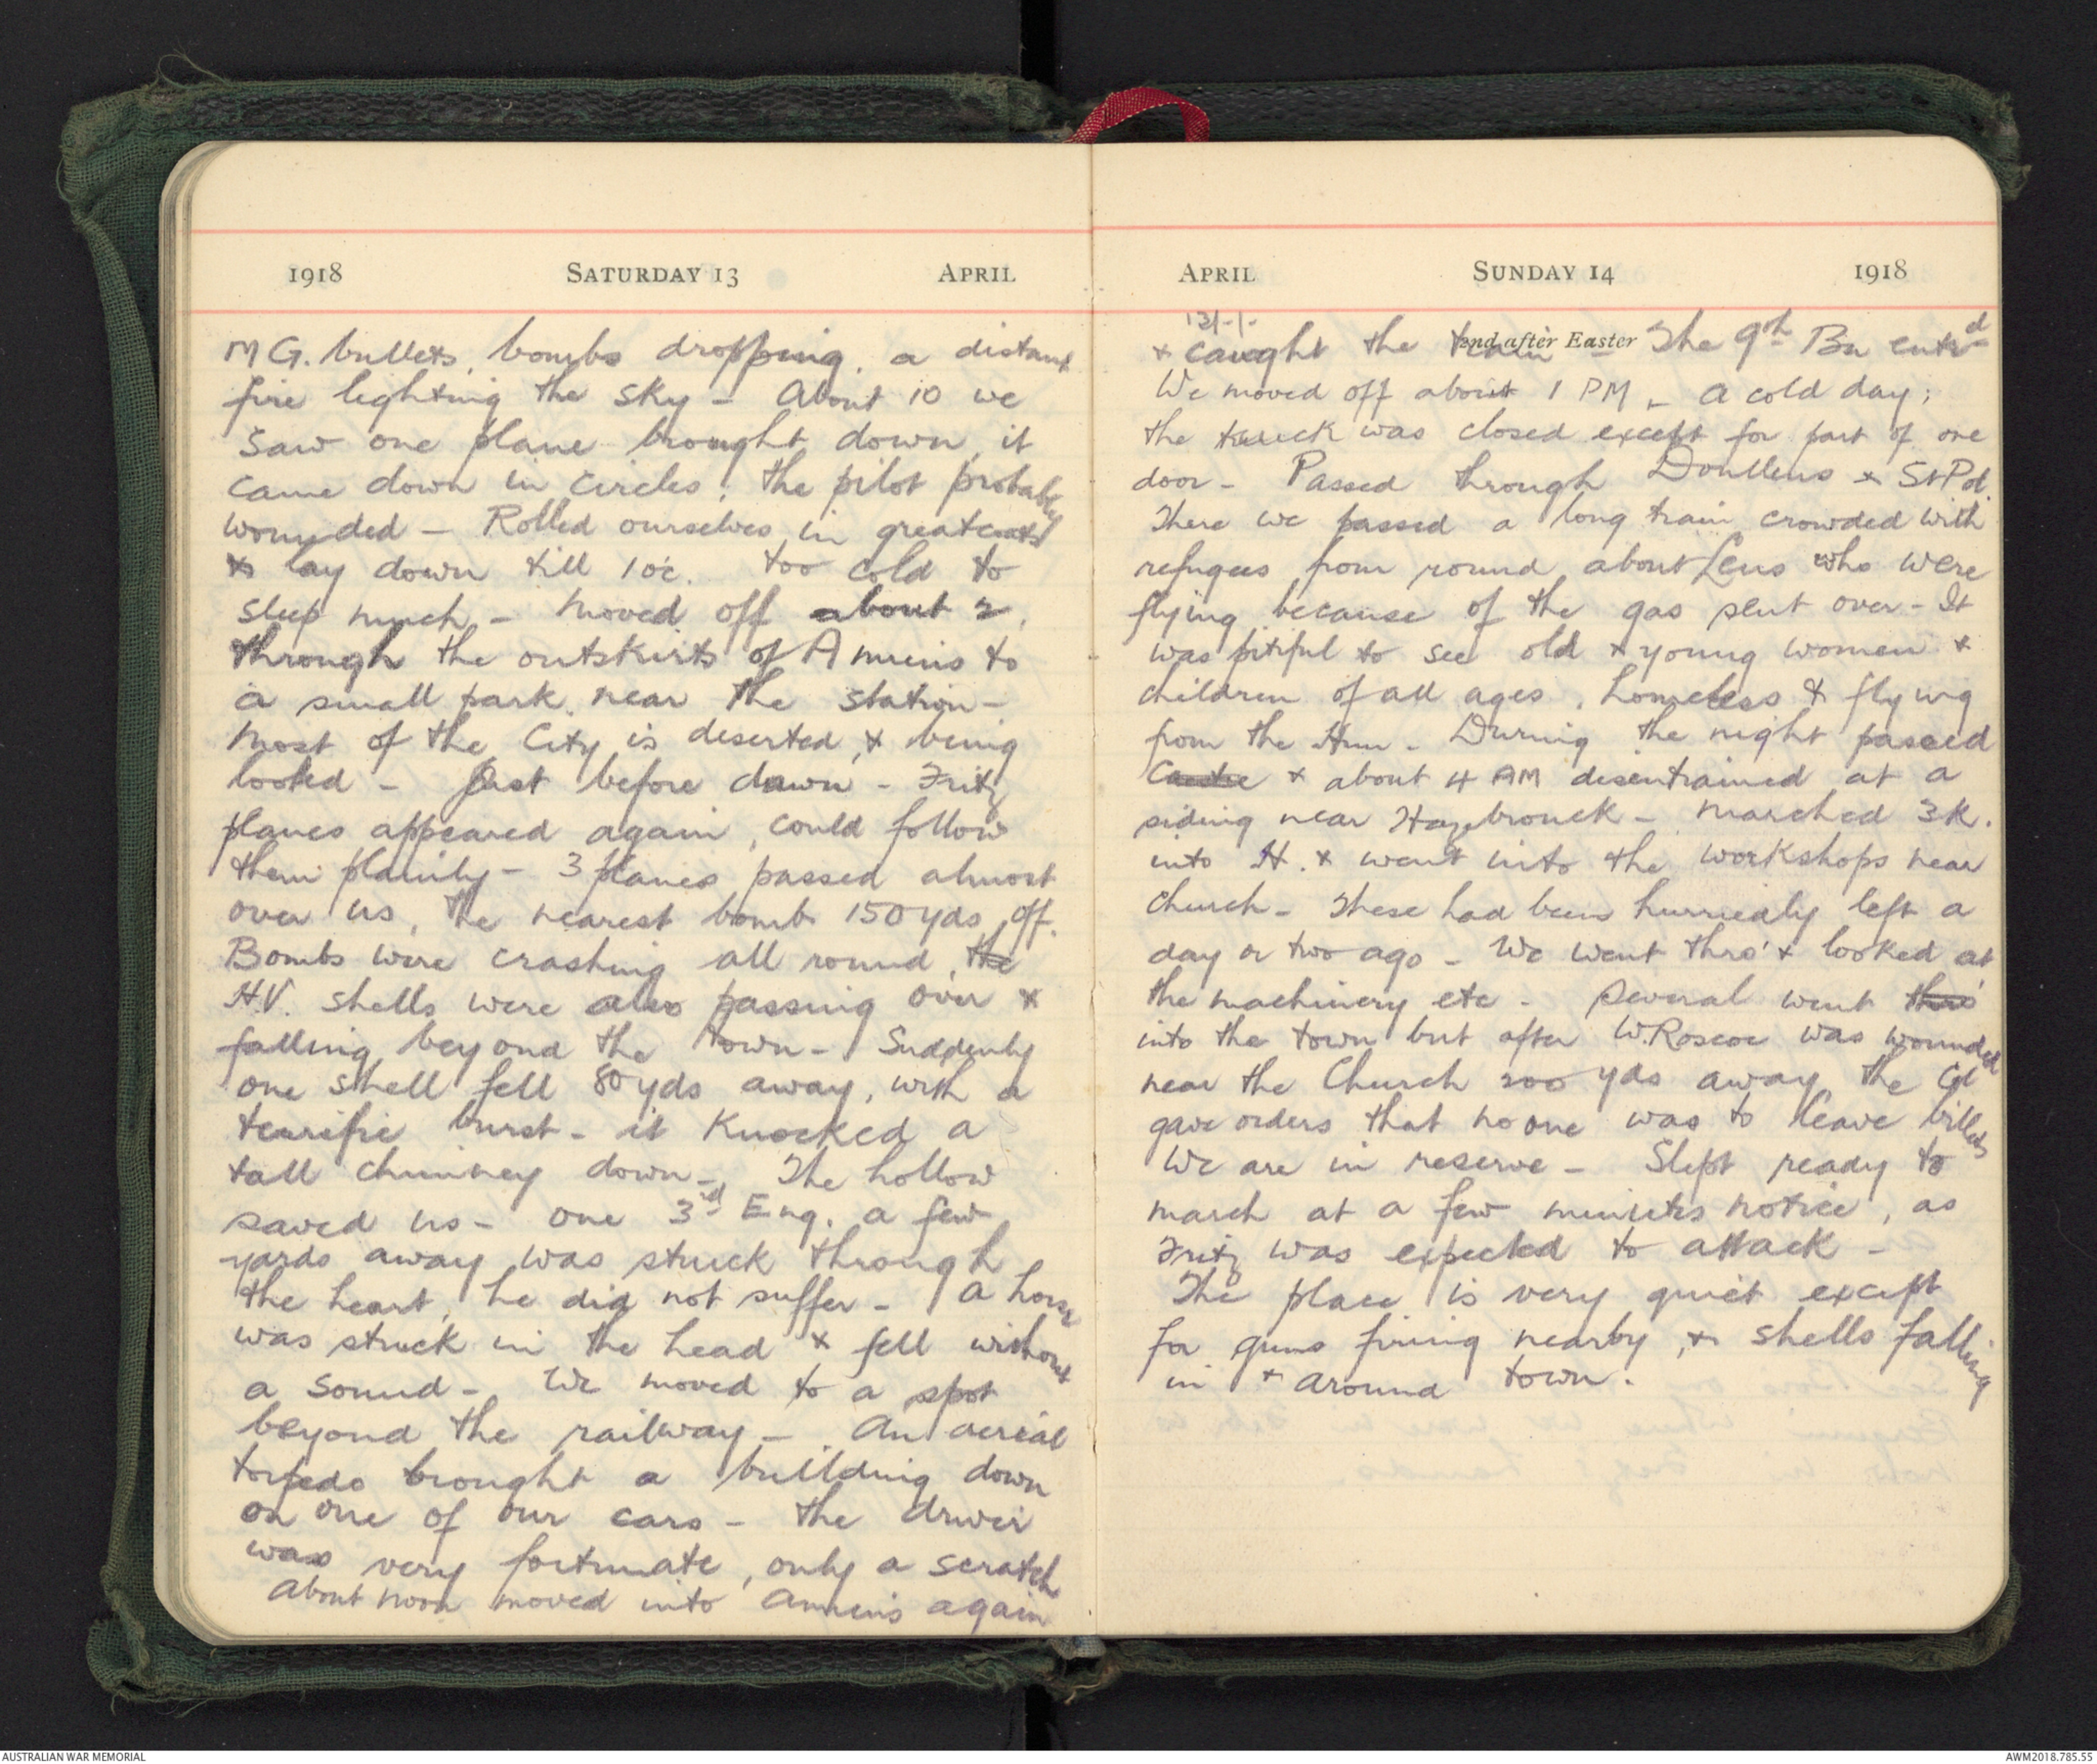 1918 SATURDAY 13 APRIL
M G. bullets, bombs dropping, a distant
fire lighting the sky - About 10 we
saw one plane brought down, it
came down in circles; the pilot probably
wounded - Rolled ourselves in greatcoats
& lay down till 1 oc. too cold to
sleep much - Moved off about 2,
through the outskirts of Amiens to
a small park near the station -
Most of the City is deserted, & being
looted - Just before dawn - Fritz
planes appeared again, could follow
them plainly - 3 planes passed almost
over us, the nearest bomb 150 yds off.
Bombs were crashing all round, the
H.V. shells were also passing over &
falling beyond the town - Suddenly
one shell fell 80 yds away, with a
terrific burst - it knocked a
tall chimney down - The hollow
saved us - one 3rd Eng. a few
yards away was struck through
the heart, he did not suffer - A horse
was struck in the head & fell without
a sound - We moved to a spot
beyond the railway - An aerial
torpedo brought a building down
on one of our cars - the driver
was very fortunate, only a scratch
About noon moved into Amiens again
APRIL SUNDAY 14 1918
2nd after Easter
13/-/-
& caught the train - The 9th Bn entrd
We moved off about 1 PM - A cold day;
the truck was closed except for part of one
door - Passed through Doullens & St Pol.
There we passed a long train crowded with
refugees from round about Lens who were
flying because of the gas sent over - It
was pitiful to see old & young women &
children of all ages, homeless & flying
from the Hun - During the night passed
Caestre & about 4 AM disentrained at a
siding near Hazebrouck - Marched 3k.
into H. & went into the workshops near
church - These had been hurriedly left a
day or two ago - We went thro' & looked at
the machinery etc - Several went thro'
into the town but after W. Roscoe was wounded
near the Church 200 yds away the Col
gave orders that no one was to leave billets
We are in reserve - Slept ready to
march at a few minutes notice, as
Fritz was expected to attack -
The place is very quiet except
for guns firing nearby, & shells falling
in & around town.
AUSTRALIAN WAR MEMORIAL
AWM2018.785.55